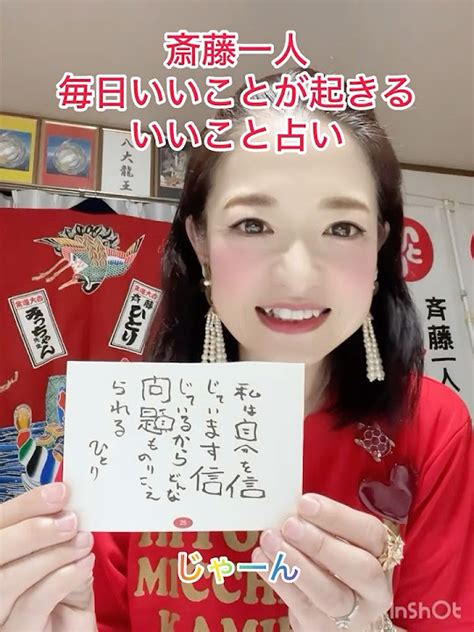 斎藤一人
毎日いいことが起きる
いいこと占い
八大龍王
斉藤一人
私は自分を信
じています信
じているからどんな
問題ものりこえ
られる
ひとり
26
じゃーん
MICCHA
KAMI
InShOt